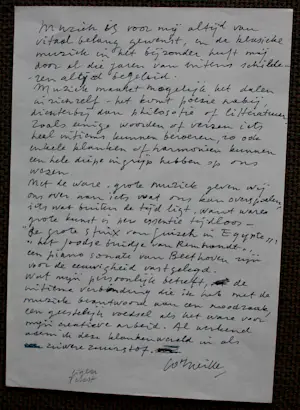 Muziek is voor mij altijd van
vitaal belang geweest, en de klassieke
muziek in het bijzonder heeft mij
door al die jaren van intens schilde-
ren altijd begeleid.
Muziek maakt mogelijk het dalen
in zichzelf - het komt poësie nabij,
dichterbij dan philosofie of litteratuur
zoals enige woorden of verzen iets
heel intiems kunnen beroeren, zo ook
enkele klanken of harmonieën kunnen
een hele diepe ingrijpen hebben op ons
wezen.
Met de ware, grote muziek geven wij
ons over aan iets wat ons kan overspoelen,
iets wat buiten de tijd ligt, want ware
grote kunst is per essentie tijdloos -
"de grote sfinx van Gizeh in Egypte",
"het Joodse bruidje van Rembrandt",
een piano sonate van Beethoven zijn
voor de eeuwigheid vastgelegd.
Wat mij persoonlijk betreft, de
intieme verbondenheid die ik heb met de
muziek beantwoord aan een noodzaak,
een geestelijk voedsel als het ware voor
mijn creatieve arbeid. Al werkend
adem ik deze klankenwereld in als
zuivere zuurstof.
Corneille